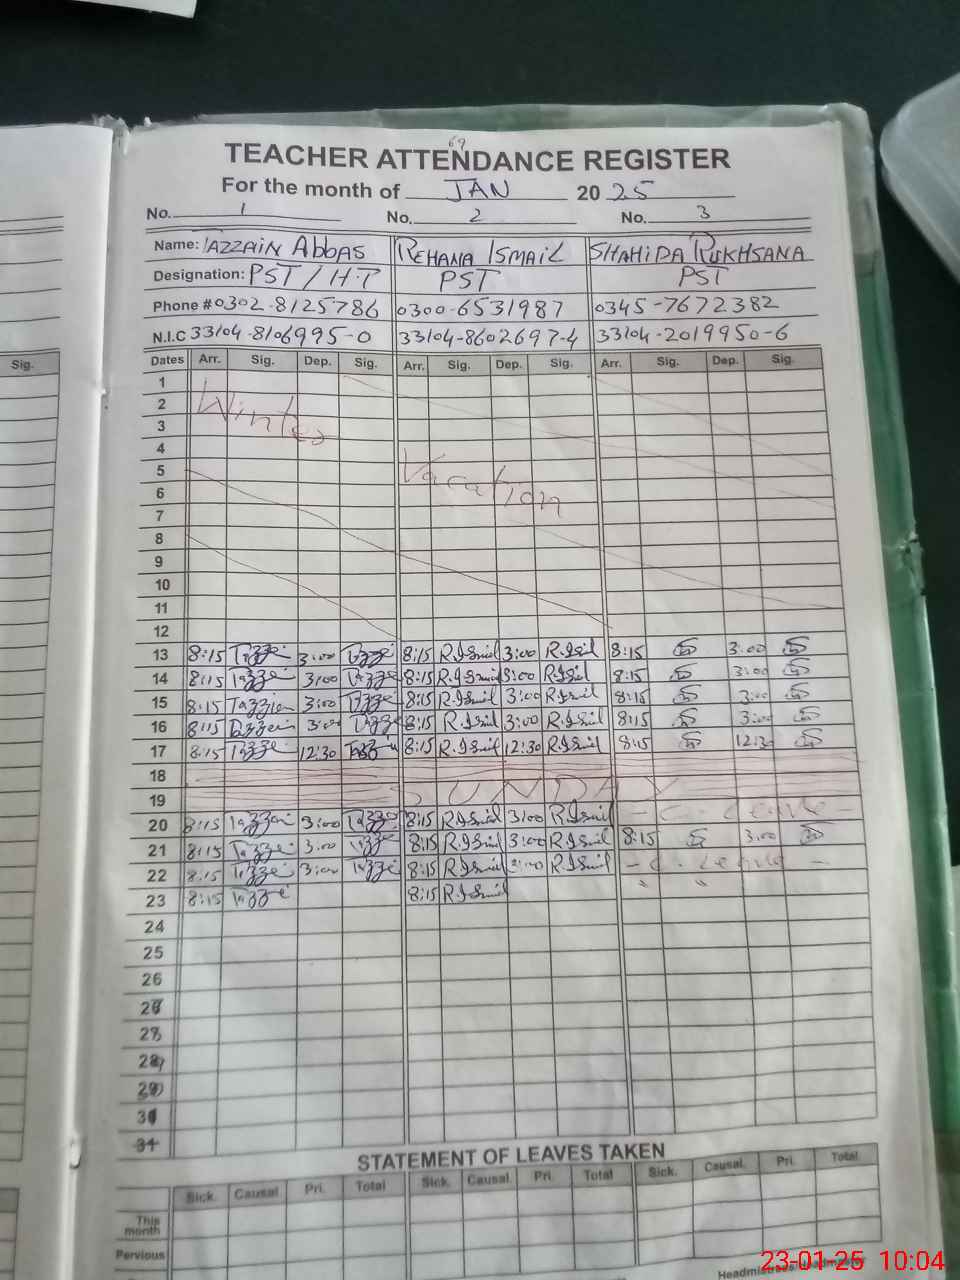 69
TEACHER ATTENDANCE REGISTER
For the month of JAN 2025
No. 1 No. 2 No. 3
Name: TAZZAIN ABBAS REHANA ISMAIL SHAHIDA RUKHSANA
Designation: PST / H.T PST PST
Phone # 0302-8125786 0300-6531987 0345-7672382
N.I.C 33104-8106995-0 33104-8602697-4 33104-2019950-6
Sig. Dates Arr. Sig. Dep. Sig. Arr. Sig. Dep. Sig. Arr. Sig. Dep. Sig.
1
2 Winter
3
4
5 Vacation
6
7
8
9
10
11
12
13 8:15 3:00 8:15 R.Ismil 3:00 R.Ismil 8:15 3:00
14 8:15 3:00 8:15 R.Ismil 3:00 R.Ismil 8:15 3:00
15 8:15 3:00 8:15 R.Ismil 3:00 R.Ismil 8:15 3:00
16 8:15 3:00 8:15 R.Ismil 3:00 R.Ismil 8:15 3:00
17 8:15 12:30 8:15 R.Ismil 12:30 R.Ismil 8:15 12:30
18
19 SUNDAY
20 8:15 3:00 8:15 R.Ismil 3:00 R.Ismil - C. Leave -
21 8:15 3:00 8:15 R.Ismil 3:00 R.Ismil 8:15 3:00
22 8:15 3:00 8:15 R.Ismil 3:00 R.Ismil - C. Leave -
23 8:15 8:15 R.Ismil " "
24
25
26
27
28
29
30
31
STATEMENT OF LEAVES TAKEN
Sick. Causal Pri. Total Sick. Causal Pri. Total Sick. Causal. Pri. Total
This month
Pervious
Headmistress/Headmaster
23-01-25 10:04